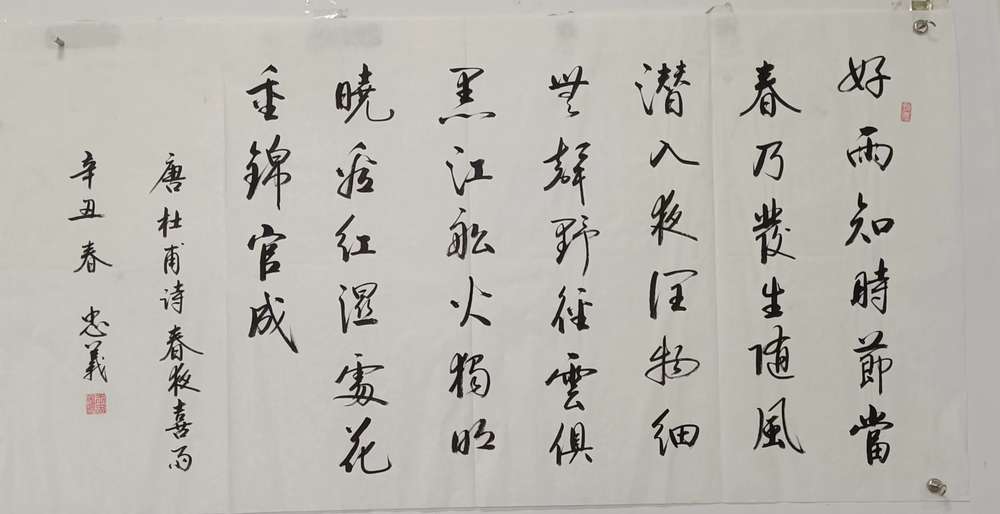 好雨知時節當
春乃發生随風
潜入夜润物細
無聲野徑雲俱
黑江船火獨明
曉看红濕處花
重錦官成
唐杜甫诗春夜喜雨
辛丑春 忠義